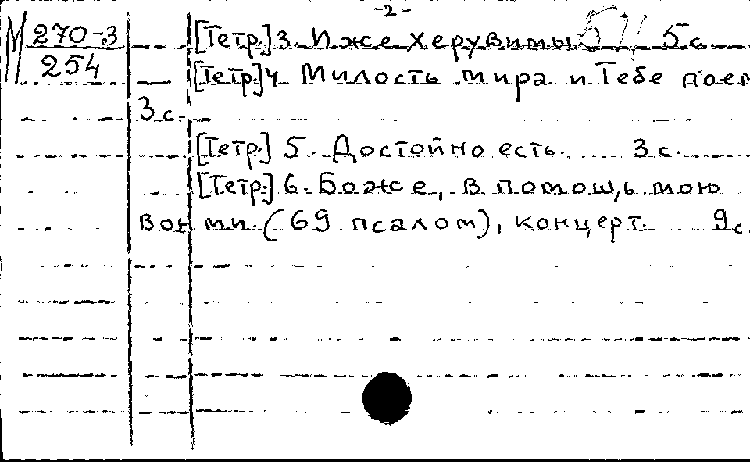 -2-
М 270-3 [Тетр.] 3. Иже херувимы 5 с.
254 [Тетр.] 4. Милость мира и Тебе поем
3 с.
[Тетр.] 5. Достойно есть. 3 с.
[Тетр.] 6. Боже, в помощь мою
вонми (69 псалом), концерт. 9 с.